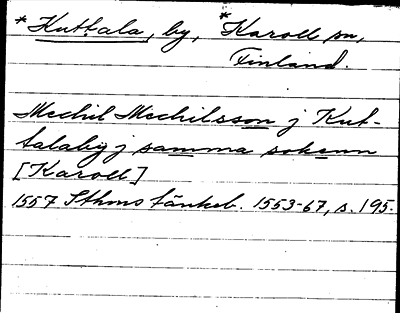 *Kuttala, by, *Karoll sn,
Finland.
Mechil Mechilsson j Kut-
talaby j samma sokenn
[Karoll]
1557 Sthms tänkeb. 1553-67, s. 195.